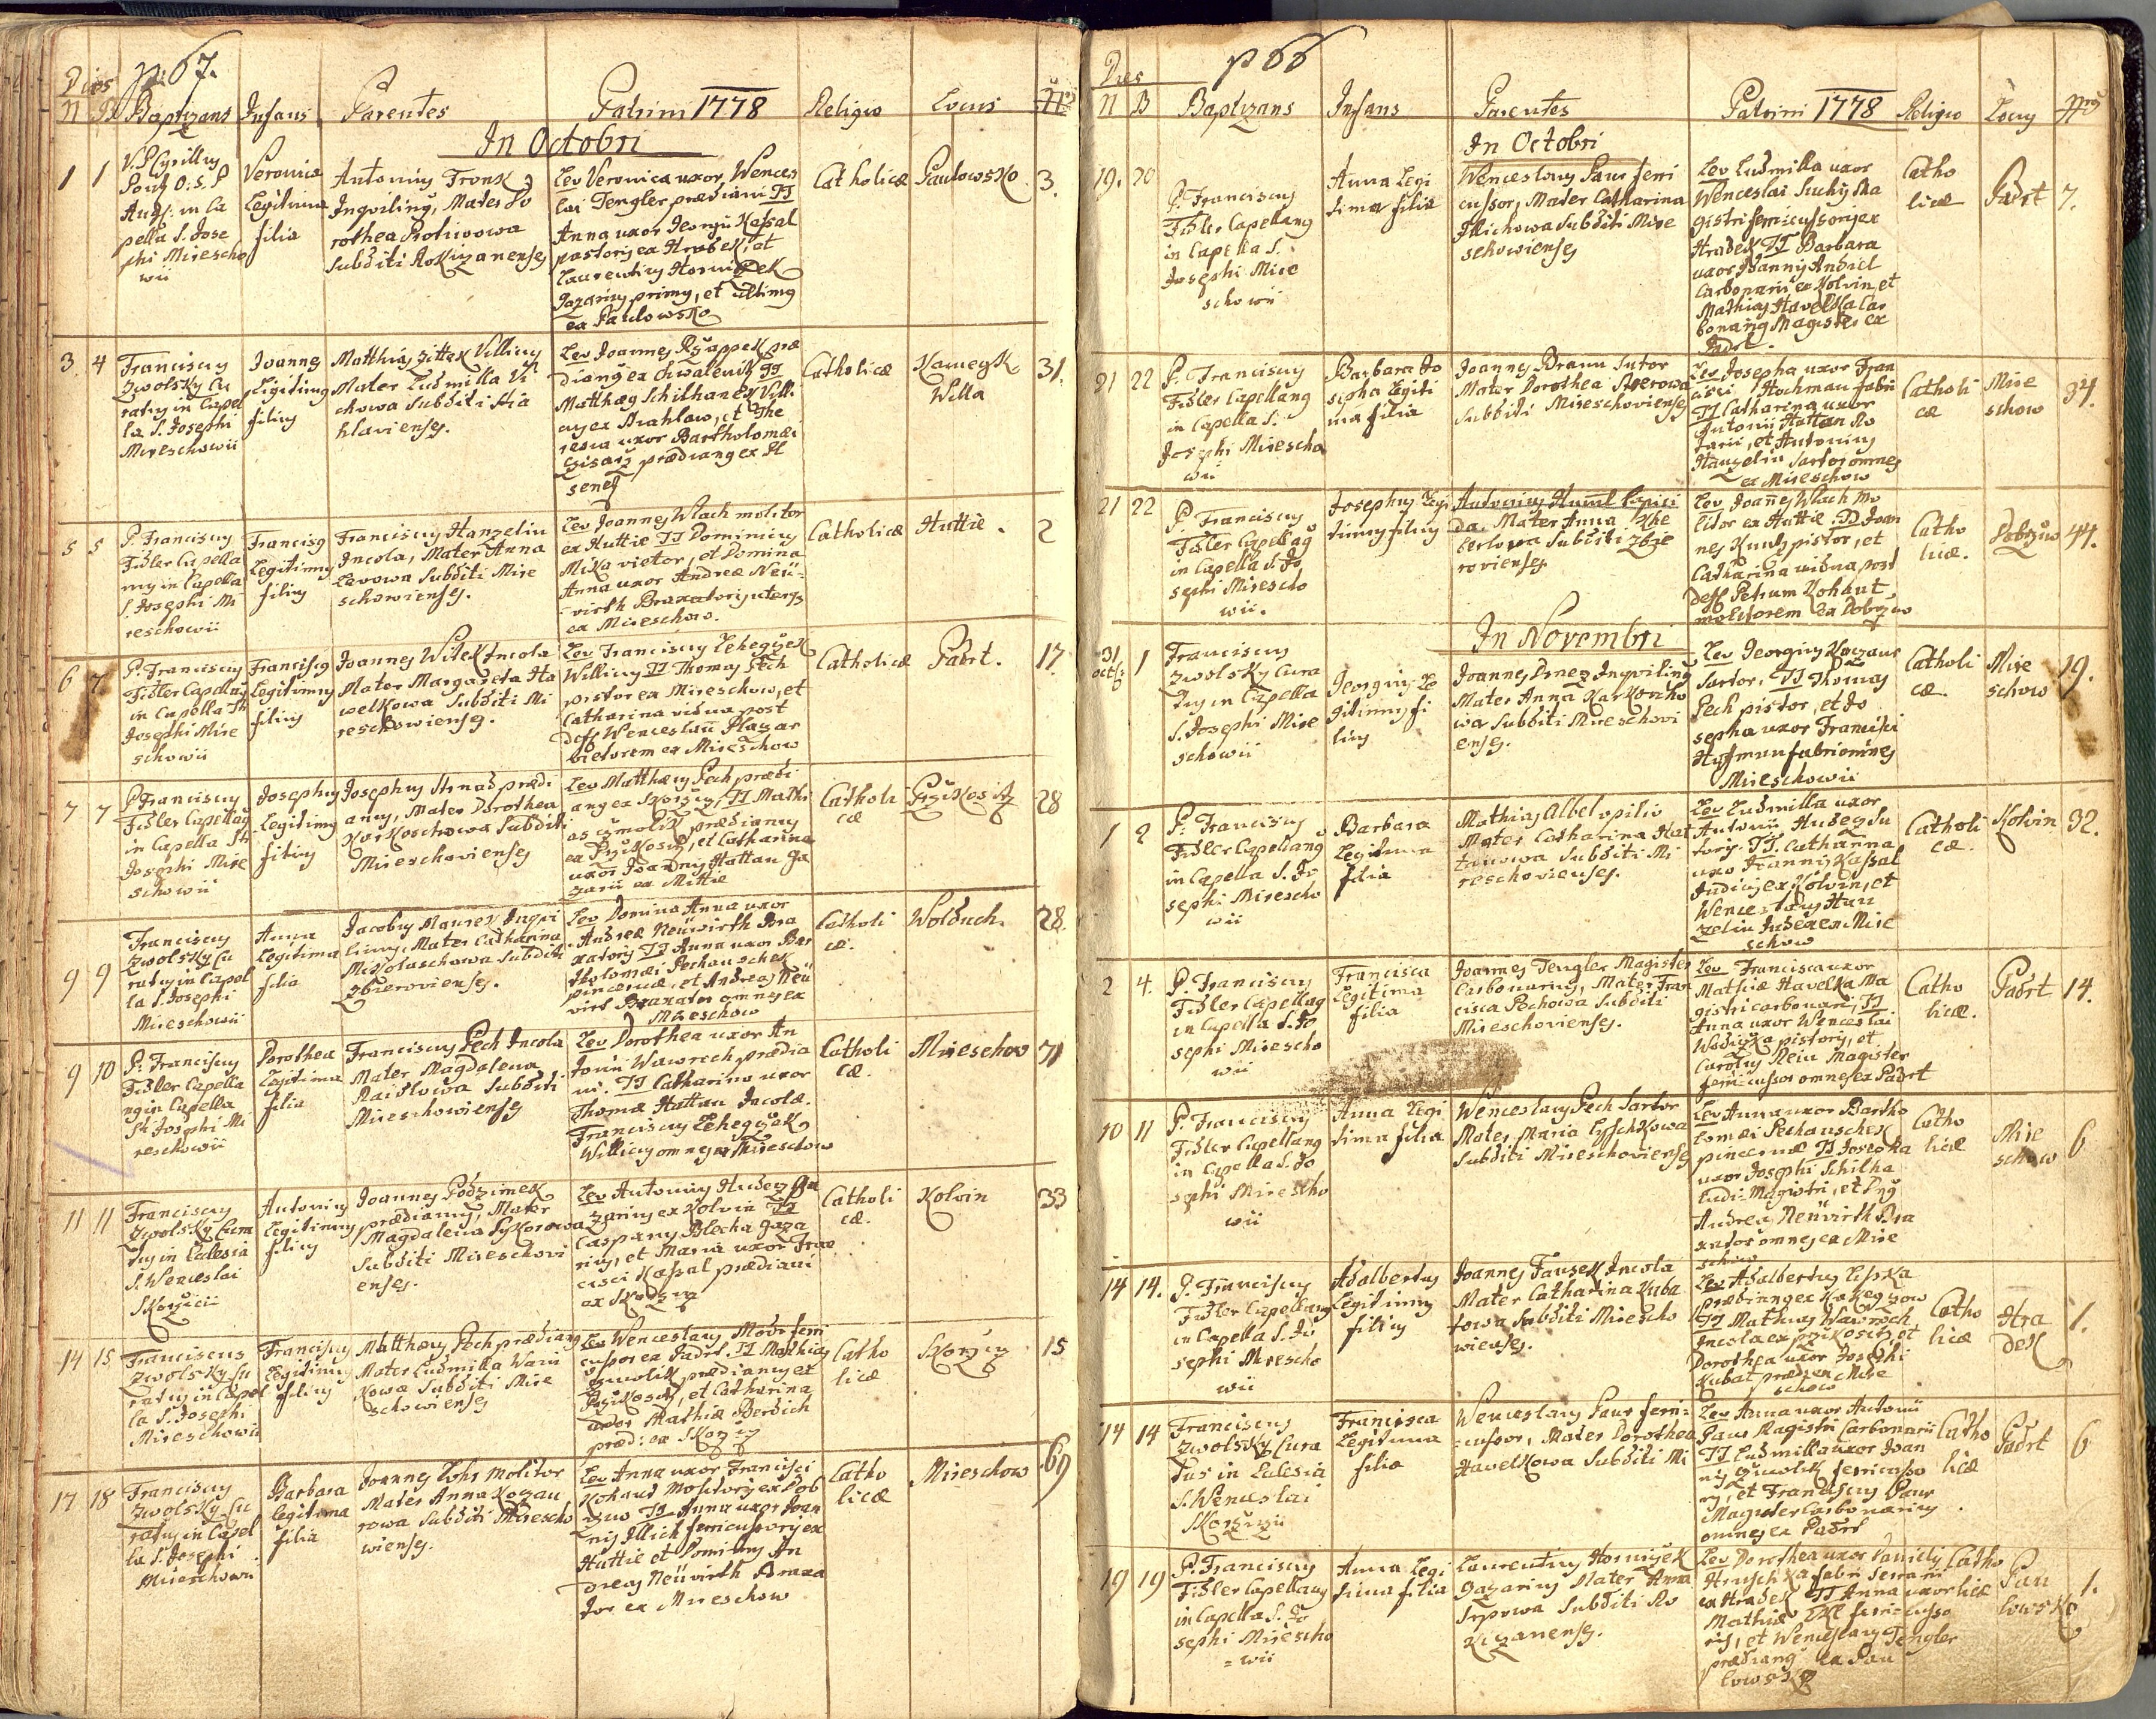 p. 67.
Dies
N B Baptizans Infans Parentes Patrini 1778 Religio Locus Nrs
In Octobri
1 1
V. P. Cyrillus
in Ca
pella S. Jose
phi Mirescho
wii
Veronica
Legitima
filia
Antonius Fronk
Inqvilinus, Mater Do
rothea Protiwowa
Subditi Rokizanenses
Lev Veronica uxor Wences
lai Tengler prædiani TT
Anna uxor Georgii Kassal
pastoris ex Hradek, et
Laurentius Horniczek
gazarius primus, et ultimus
ex Paulowsko
Catholicæ
Paulowsko
3.
3. 4
Franciscus
Zwolsky Cu
ratus in Capel
la S. Josephi
Mireschowii
Joannes
Legitimus
filius
Matthias Zittek Villicus
Mater Ludmilla Vl
chowa Subditi Sta
hlavienses.
Lev Joannes Rzappek præ
dianus ex Chwalenitz TT
Matthæus Schilhanek Vill.
cus ex Stiahlaw, et The
resia uxor Bartholomæi
Czisarz prædianus ex St
senetz
Catholicæ
Kameyk
Willa
31.
5 5
P. Franciscus
Fidler Capella
nus in Capella
S. Josephi Mi
reschowii
Franciscus
Legitimus
filius
Franciscus Hanzelin
Incola, Mater Anna
Levowa Subditi Mire
schowienses.
Lev Joannes Wlach molitor
ex Huttie TT Dominicus
Mika vietor, et Domina
Anna uxor Andreæ Neü-
virth Braxatoris uterqs
ex Mireschow.
Catholicæ
Huttie.
2
6 7
P. Franciscus
Fidler Capellanus
in Capella Sti
Josephi Mire
schowii
Franciscus
Legitimus
filius
Joannes Witek Incola
Mater Margareta Ha
welkowa Subditi Mi
reschowienses.
Lev Franciscus Lehegczek
Willicus TT Thomas Pech
pistor ex Mireschow, et
Catharina vidua post
def. Wenceslaum Plazar
vietorem ex Mireschow
Catholicæ
Padrt.
17.
7 7
P. Franciscus
Fidler Capellanus
in Capella Sti
Josephi Mire
schowii
Josephus
Legitimus
filius
Josephus Hrnad prædi
anus, Mater Dorothea
Korkoschowa Subditi
Mireschovienses
Lev Matthæus Pech prædi
anus ex Skorzitz, TT Mathi
as Czmolik prædianus
ex Przikositz, et Catharina
uxor Joannis Hattan ga
zarii ex Mittie
Catholi
cæ
Przikositz
28
9 9
Franciscus
Zwolsky Cu
ratus in Capel
la S. Josephi
Mireschowii
Anna
Legitima
filia
Jacobus Maurer Inqvi
linus, Mater Catharina
Mikolaschowa Subditi
Zbirovienses.
Lev Domina Anna uxor
Andreæ Neüwirth Bra
xatoris TT Anna uxor Bar
tholomæi Pechauschek
pincernæ, et Andreas Neü
virt Braxator omnes ex
Mireschow
Catholi
cæ.
Wolduch.
28.
9 10
P. Franciscus
Fidler Capella
nus in Capella
Sti Josephi Mi
reschowii
Dorothea
Legitima
filia
Franciscus Pech Incola
Mater Magdalena
Raidlowa Subditi
Mireschowienses
Lev Dorothea uxor An
tonii Wawrech prædia
ni. TT Catharina uxor
Thomæ Hattan Incolæ.
Franciscus Lehegczek
Willicus omnes ex Mireschow
Catholi
cæ.
Mireschow
71
11 11
Franciscus
Zwolsky Cura
tus in Eclesia
S. Wenceslai
Skorzicii
Antonius
Legitimus
filius
Joannes Podzimek
prædianus, Mater
Magdalena Sykorowa
Subditi Mireschovi
enses.
Lev Antonius Hudez ga
zarius ex Kolvin TT
Casparus Blecha gaza
rius, et Maria uxor Fran
cisci Kassal prædiani
ex Skorzitz
Catholi
cæ.
Kolvin
33
14 15
Franciscus
Zwolsky Cu
ratus in Capel
la S. Josephi
Mireschowii
Franciscus
Legitimus
filius
Matthæus Pech prædianus
Mater Ludmilla Wani
kowa Subditi Mire
schowienses
Lev Wenceslaus Modr ferri
cussor ex Padrt. TT Mathias
Czmolik prædianus ex
Przikositz, et Catharina
uxor Mathiæ Berdich
præd: ex Skorzitz
Catho
licæ
Skorzitz
15
17 18
Franciscus
Zwolsky Cu
ratus in Capel
la S. Josephi
Mireschowii
Barbara
legitima
filia
Joannes Lohr Molitor
Mater Anna Kozau
rowa Subditi Mirescho
wienses.
Lev Anna uxor Francisci
Kohaut Molitoris ex Dob
rziw TT Anna uxor Joan
nis Illich ferricussoris ex
Huttie et Dominus An
dreas Neüvirth Braxa
tor ex Mireschow
Catho
licæ
Mireschow
69
p 68
Dies
N B Baptizans Infans Parentes Patrini 1778 Religio Locus Nrs
In Octobri
19. 20
P. Franciscus
Fidler Capellanus
in Capella S.
Josephi Mire
schowii
Anna Legi
tima filia
Wenceslaus Paur ferri
cussor, Mater Catharina
Illichowa Subditi Mire
schowienses
Lev Ludmilla uxor
Wenceslai Suchy Ma
gistri ferricussoris ex
Hradek TT Barbara
uxor Joannis Andiel
Carbonarii ex Kolvin, et
Mathias Havelka Car
bonarius Magister ex
Padrt.
Catho
licæ
Padrt
7.
21 22
P. Franciscus
Fidler Capellanus
in Capella S.
Josephi Mirescho
wii
Barbara Jo
sepha Legiti
ma filia
Joannes Braun Sutor
Mater Dorothea
Subditi Mireschovienses
Lev Josepha uxor Fran
cisci Hochman fabri
TT Catharina uxor
Antonii Hattan Ro
tarii, et Antonius
Hanzelin Sartor omnes
ex Mireschow
Catholi
cæ
Mire
schow
34.
21 22
P. Franciscus
Fidler Capellanus
in Capella S. Jo
sephi Mirescho
wii.
Josephus Legi
timus filius
Antonius Huml Lapici
da. Mater Anna
Subditi Zbi
rovienses
Lev Joañes Wlach Mo
litor ex Huttie. TT Joan
nes Kuntz pistor, et
Catharina vidua post
def. Petrum Kohaut
molitorem ex Dobrziw
Catho
licæ.
Dobrziw
44.
In Novembri
31 octb. 1
Franciscus
Zwolsky Cura
tus in Capella
S. Josephi Mire
schowii
Georgius Le
gitimus fi
lius
Joannes Drnez Inqvilinus
Mater Anna Karkoscho
wa Subditi Mireschovi
enses.
Lev Georgius Kozaur
Sartor, TT Thomas
Pech pistor, et Jo
sepha uxor Francisci
Hoffman fabri omnes
Mireschowii
Catholi
cæ.
Mire
schow
19.
1 2
P. Franciscus
Fidler Capellanus
in Capella S. Jo
sephi Mirescho
wii
Barbara
Legitima
filia
Mathias Albel opilio
Mater Catharina Hat
tanowa Subditi Mi
reschovienses.
Lev Ludmilla uxor
Antonii Hudez Su
toris. TT Catharina
uxo Joannis Kassal
Judicis ex Kolvin, et
Wenceslaus Han
zelin Judex ex Mire
schow
Catholi
cæ.
Kolvin
32.
2 4.
P. Franciscus
Fidler Capellanus
in Capella S. Jo
sephi Mirescho
wii
Francisca
Legitima
filia
Joannes Tengler Magister
Carbonarius, Mater Fran
cisca Pechowa Subditi
Mireschovienses.
Lev Francisca uxor
Mathiæ Havelka Ma
gistri carbonarii, TT
Anna uxor Wenceslai
Wodiczka pistoris, et
Carolus Rein Magister
ferri=cussor omnes ex Padrt
Catho
licæ.
Padrt
14.
10 11
P. Franciscus
Fidler Capellanus
in Capella S. Jo
sephi Mirescho
wii
Anna Legi
tima filia
Wenceslaus Pech Sartor
Mater Maria
Subditi Mireschovienses
Lev Anna uxor Bartho
lomæi Pechauschek
pincernæ TT Josepha
uxor Josephi Schilha
Ludi Magistri, et Dnus
Andreas Neüvirth Bra
xator omnes ex Mire
schow
Catho
licæ
Mire
schow
6
14 14.
P. Franciscus
Fidler Capellanus
in Capella S. Jo
sephi Mirescho
wii
Adalbertus
Legitimus
filius
Joannes Fausek Incola
Mater Catharina Kuba
towa Subditi Mirescho
wienses.
Lev Adalbertus Lisska
prædianus ex Kakegzow
TT Mathias Wawroch
Incola ex Przikositz, et
Dorothea uxor Josephi
Kubat præd: ex Mire
schow
Catho
licæ
Hra
dek
1.
14 14
Franciscus
Zwolsky Cura
tus in Eclesia
S. Wenceslai
Skorzizii
Francisca
Legitima
filia
Wenceslaus Paur ferri=
=cussor, Mater Dorothea
Havelkowa Subditi Mi
Lev Anna uxor Antonii
Paur Magistri Carbonarii
TT Ludmilla uxor Joan
nis Czmolik ferricusso
ris, et Franciscus Paur
Magister Carbonarius
omnes ex Padrt
Catho
licæ
Padrt
6
19 19
P. Franciscus
Fidler Capellanus
in Capella S. Jo
sephi Mirescho
=wii
Anna Legi
tima filia
Laurentius Horniczek
gazarius Mater Anna
Srpowa Subditi Ro
kizanenses.
Lev Dorothea uxor Danielis
Hruschka fabri ferrarii
ex Hradek TT Anna uxor
Mathiæ ferri=cusso
ris, et Wenceslaus Tengler
prædianus ex Pau
lowsko
Catho
licæ
Pau
lowsko
1.